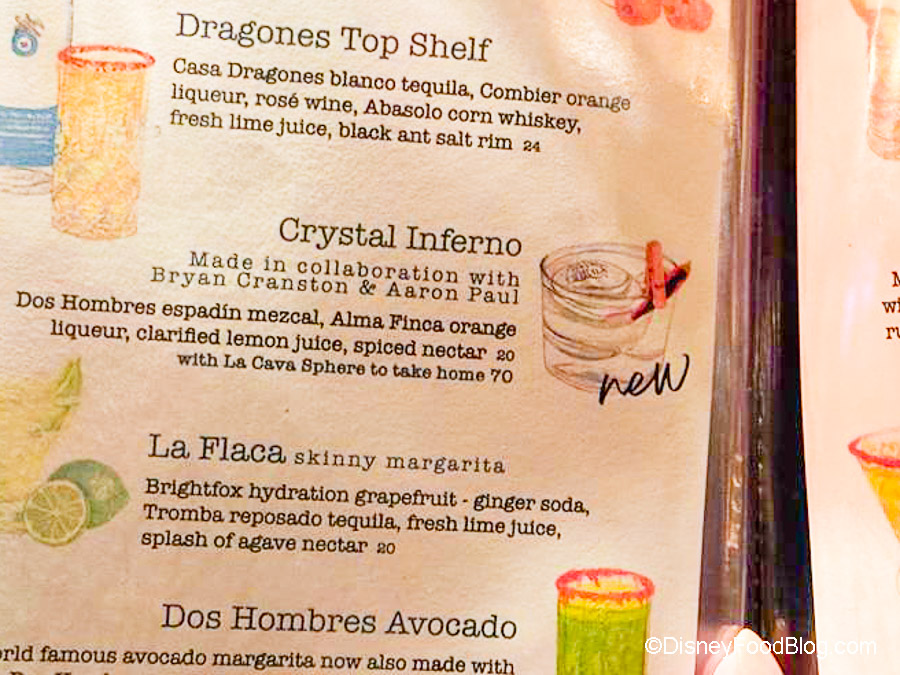 Dragones Top Shelf
Casa Dragones blanco tequila, Combier orange
liqueur, rosé wine, Abasolo corn whiskey,
fresh lime juice, black ant salt rim 24
Crystal Inferno
Made in collaboration with
Bryan Cranston & Aaron Paul
Dos Hombres espadín mezcal, Alma Finca orange
liqueur, clarified lemon juice, spiced nectar 20
with La Cava Sphere to take home 70
new
La Flaca skinny margarita
Brightfox hydration grapefruit - ginger soda,
Tromba reposado tequila, fresh lime juice,
splash of agave nectar 20
Dos Hombres Avocado
famous avocado margarita now also made with
©DisneyFoodBlog.com